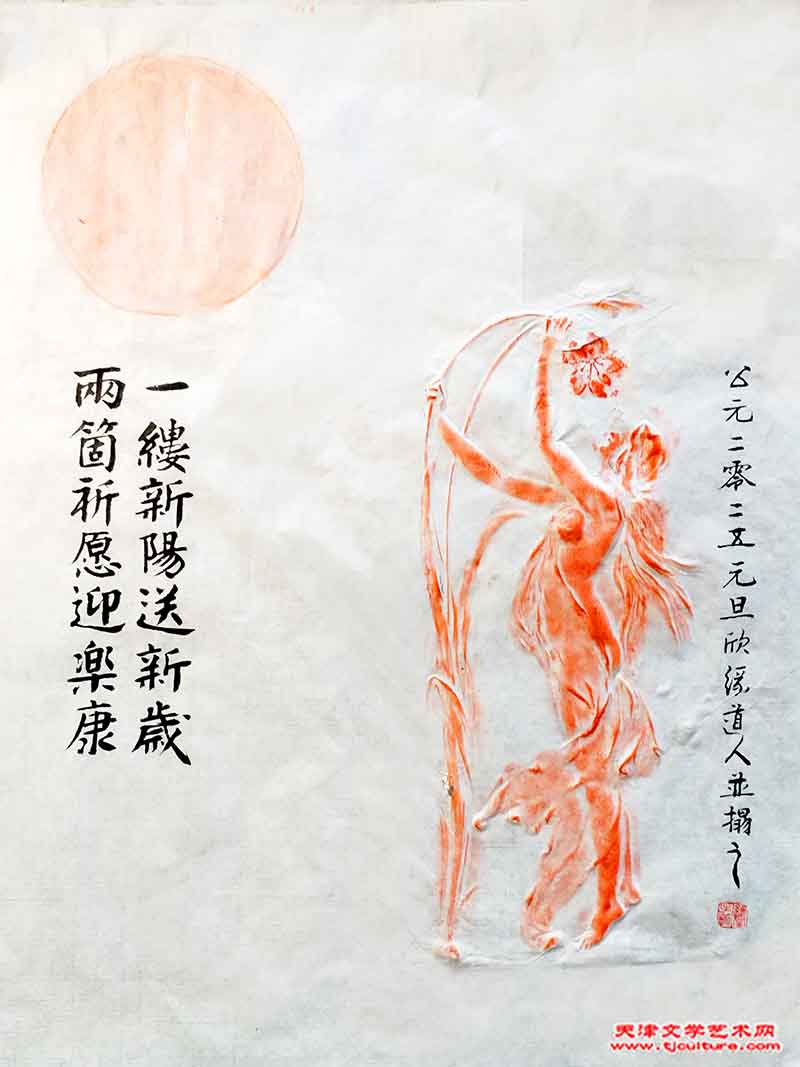 一縷新陽送新歲
兩箇祈愿迎樂康
公元二零二五元旦欣缘道人並搨之
天津文学艺术网
http://www.tjculture.com